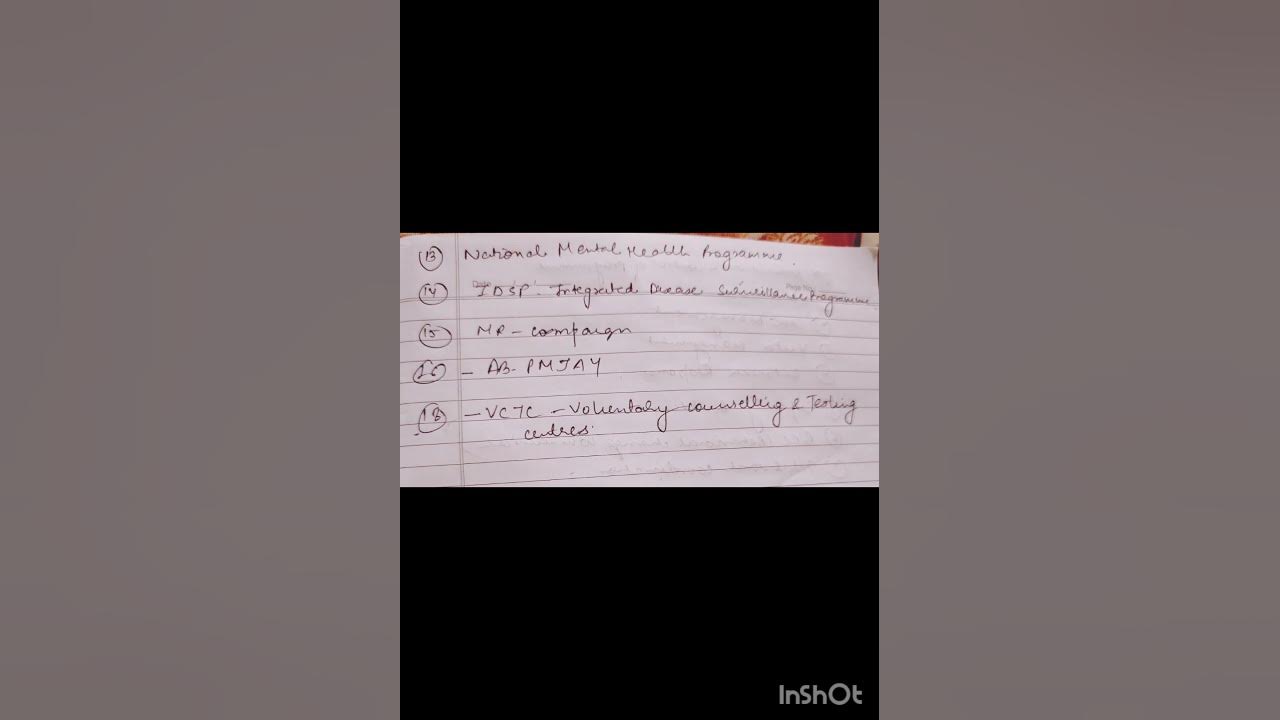 13 National Mental Health Programme.
14 IDSP - Integrated Disease Surveillance Programme
15 MR - campaign
16 - AB-PMJAY
18 - VCTC - Voluntary counselling & Testing
centres.
InShOt